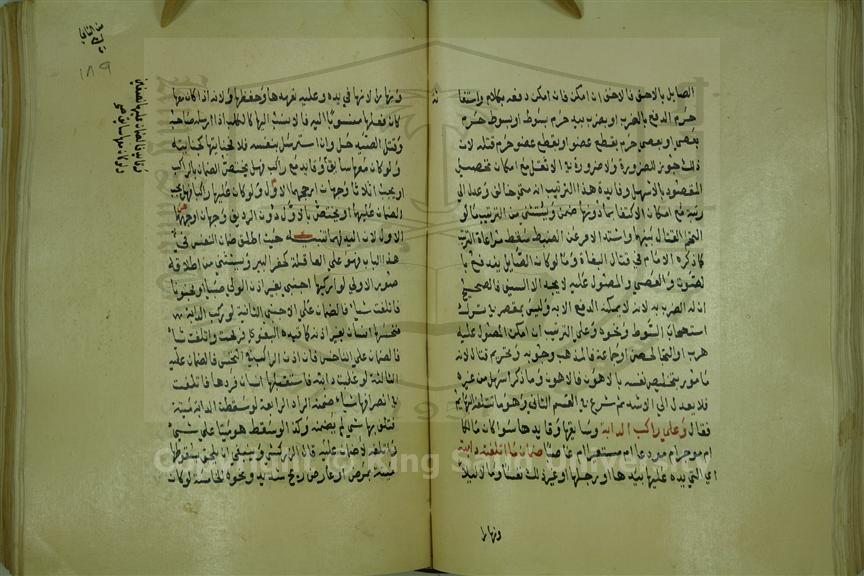 الصايل بالاخف فالاخف ان امكن فان امكن دفعه بكلام واستغاثة
حرم الدفع بالضرب او بضرب بيد حرم بسوط او بسوط حرم
بعصى او بعصى حرم بقطع عضو او بقطع عضو حرم قتله لان
ذلك جوز للضرورة ولا ضرورة في الاثقل مع امكان تحصيل
المقصود بالاسهل وفايدة هذا الترتيب انه متى خالف وعدل الى
رتبة مع امكان الاكتفا بما دونها ضمن ويستثنى من الترتيب ما لو
التحم القتال بينهما واشتد الامر عن الضبط سقط مراعاة الترتيب
كما ذكره الامام في قتال البغاة وما لو كان الصايل يندفع با
لسوط والعصى والمصول عليه لا يجد الا السيف فالصحيح
ان له الضرب به لانه لا يمكنه الدفع الا به وليس بمقصر في ترك
استصحاب السوط ونحوه وعلى الترتيب ان امكن المصول عليه
هرب او التجا لحصن او جماعة فالمذهب وجوبه وتحريم قتال لانه
مامور بتخليص نفسه بالاهون فالاهون وما ذكر اسهل من غيره
فلا يعدل الى الاشد ثم شرع في القسم الثاني وهو ما تتلفه البهايم
فقال وعلى راكب الدابة وسايقها وقايدها سوا كان مالكا
ام موجرا ام مودعا ام مستعيرا ام غاصبا ضمان ما اتلفته دابته
اي التي يده عليها بيدها او رجلها او غير ذلك نفسا وما لا ليلا
ونهارا
ونهارا لانها في يده وعليه تعهدها وحفظها ولانه اذا كان معها
كان فعلها منسوبا اليه والا نسب اليها كالكلب اذا ارسله صاحبه
وقتل الصيد حل وان استرسل بنفسه فلا فجنايتها كجنايته
ولو كان معها سايق وقايد مع راكب فهل يختص الضمان بالراكب
او يجب اثلاثا وجهان ارجحهما الاول ولو كان عليها راكبان فهل يجب
الضمان عليهما او يختص بالاول دون الرديف وجهان اوجههما
الاول لان اليد لهما تنبيه حيث اطلق ضمان النفس في
هذا الباب فهو على العاقلة كحفر البير ويستثنى من اطلاقه
صور الاولى لو اركبها اجنبي بغير اذن الولي صبيا او مجنونا
فاتلفت شيا فالضمان على الاجنبي الثانية لو ركب الدابة
فنخسها انسان بغير اذنه كما قيده البغوي فرمحت واتلفت شيا
فالضمان على الناخس فان اذن الراكب في النخس فالضمان عليه
الثالثة لو غلبته دابته فاستقبلها انسان فردها فاتلفت
في انصرافها شيا ضمنه الراد الرابعة لو سقطت الدابة ميتة
فتلف بها شي لم يضمنه وكذا لو سقط هو ميتا على شي
واتلفه لا ضمان عليه قال الزركشي وينبغي ان يلحق بسقوطها
ميتة بمرض او عارض ريح شديد ونحوه الخامسة لو كان
١٨٩